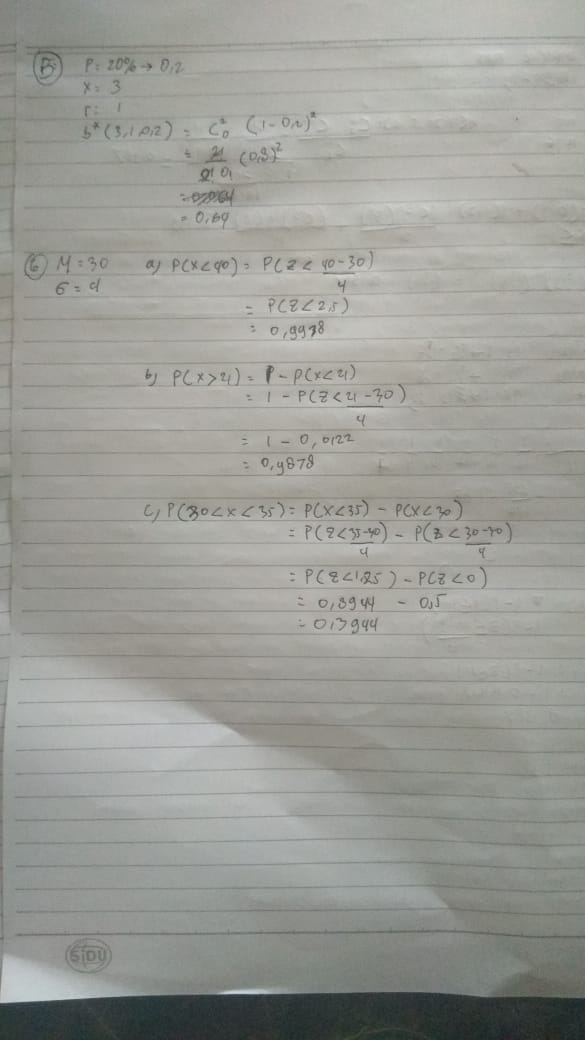 5. P = 20% → 0,2
x = 3
r = 1
b*(3,1,0,2) = C²₀ (1-0,2)²
= 2!/0! 0! (0,8)²
= 0,64
⑥ M = 30 a) P(x<40) = P(z < 40-30/4)
σ = 4
= P(z<2,5)
= 0,9938
b) P(x>21) = 1 - P(x<21)
= 1 - P(z<21-30/4)
= 1 - 0,0122
= 0,9878
c) P(30<x<35) = P(x<35) - P(x<30)
= P(z<35-30/4) - P(z<30-30/4)
= P(z<1,25) - P(z<0)
= 0,8944 - 0,5
= 0,3944
SIDU